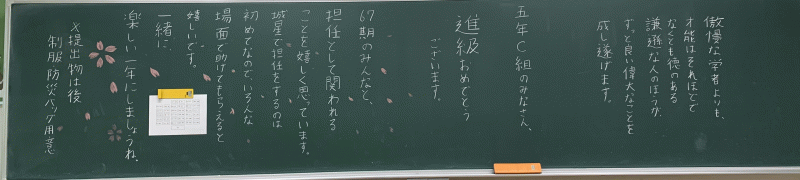 傲慢な学者よりも、
才能はそれほどで
なくとも徳のある
謙遜な人のほうが、
ずっと良い偉大なことを
成し遂げます。
五年C組のみなさん、
進級おめでとう
ございます。
67期のみんなと、
担任として関われる
ことを嬉しく思っています。
城星で担任をするのは
初めてなので、いろんな
場面で助けてもらえると
嬉しいです。
一緒に
楽しい一年にしましょうね。
※提出物は後
制服 防災バッグ用意